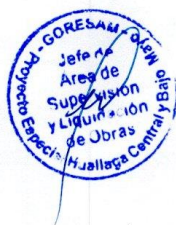 GORESAM - Proyecto Especial Huallaga Central y Bajo Mayo
Jefe de
Area de
Supervisión
y Liquidación
de Obras